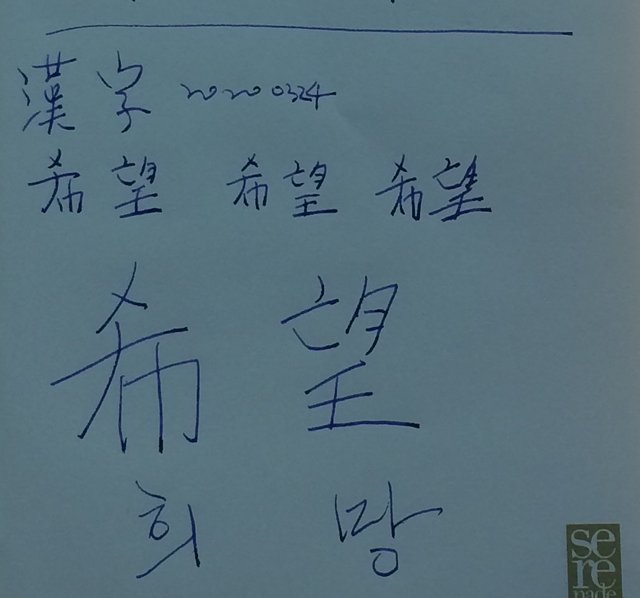 漢字 20200324
希望 希望 希望
希望
희망
se
re
nade